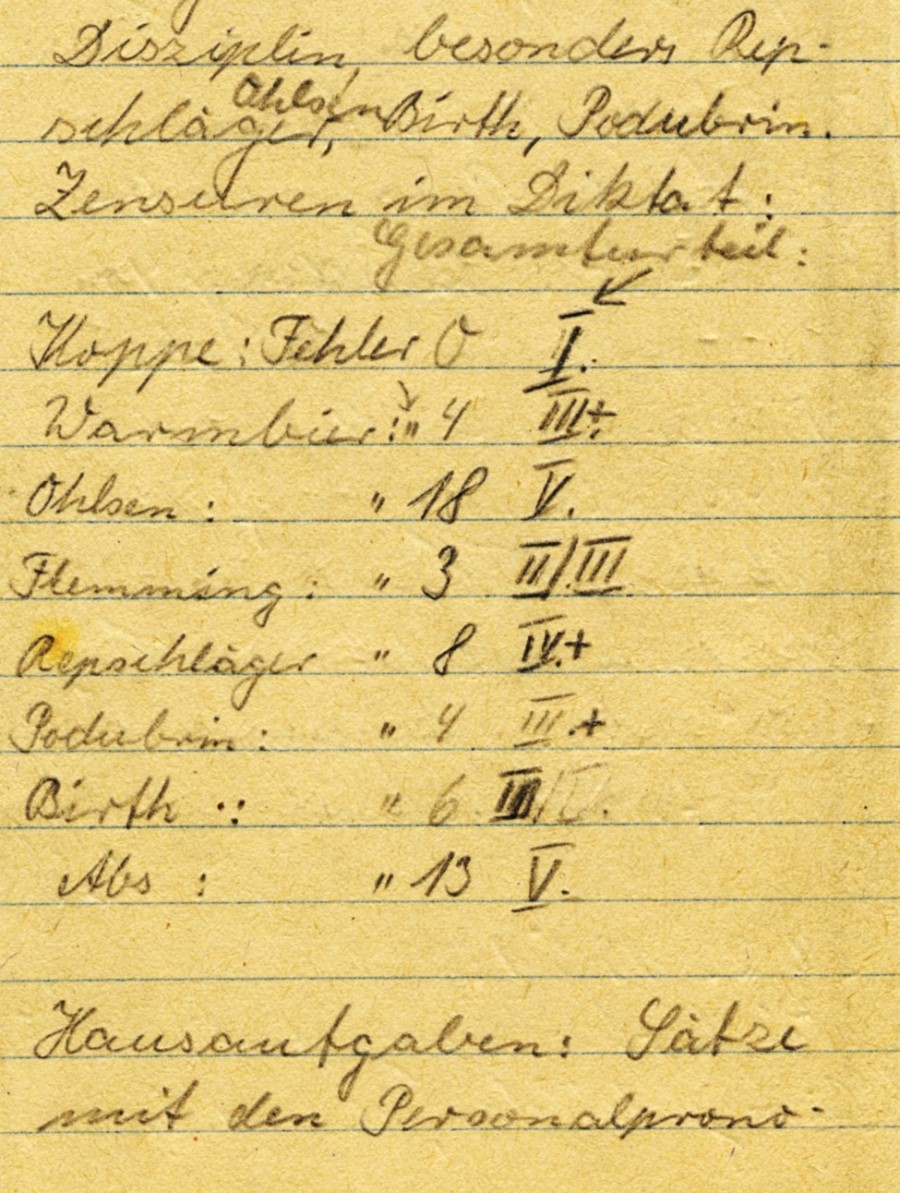 Disziplin, besonders Rep-
Ohlsen
schläger, Birth, Podubrin.
Zensuren im Diktat:
Gesamturteil:
Koppe: Fehler 0 I.
Warmbier: " 4 III+.
Ohlsen: " 18 V.
Flemming: " 3 II/III
Repschläger " 8 IV.+
Podubrin: " 4 III.+
Birth : " 6 III/IV.
Abs : " 13 V.
Hausaufgaben: Sätze
mit den Personalprono-